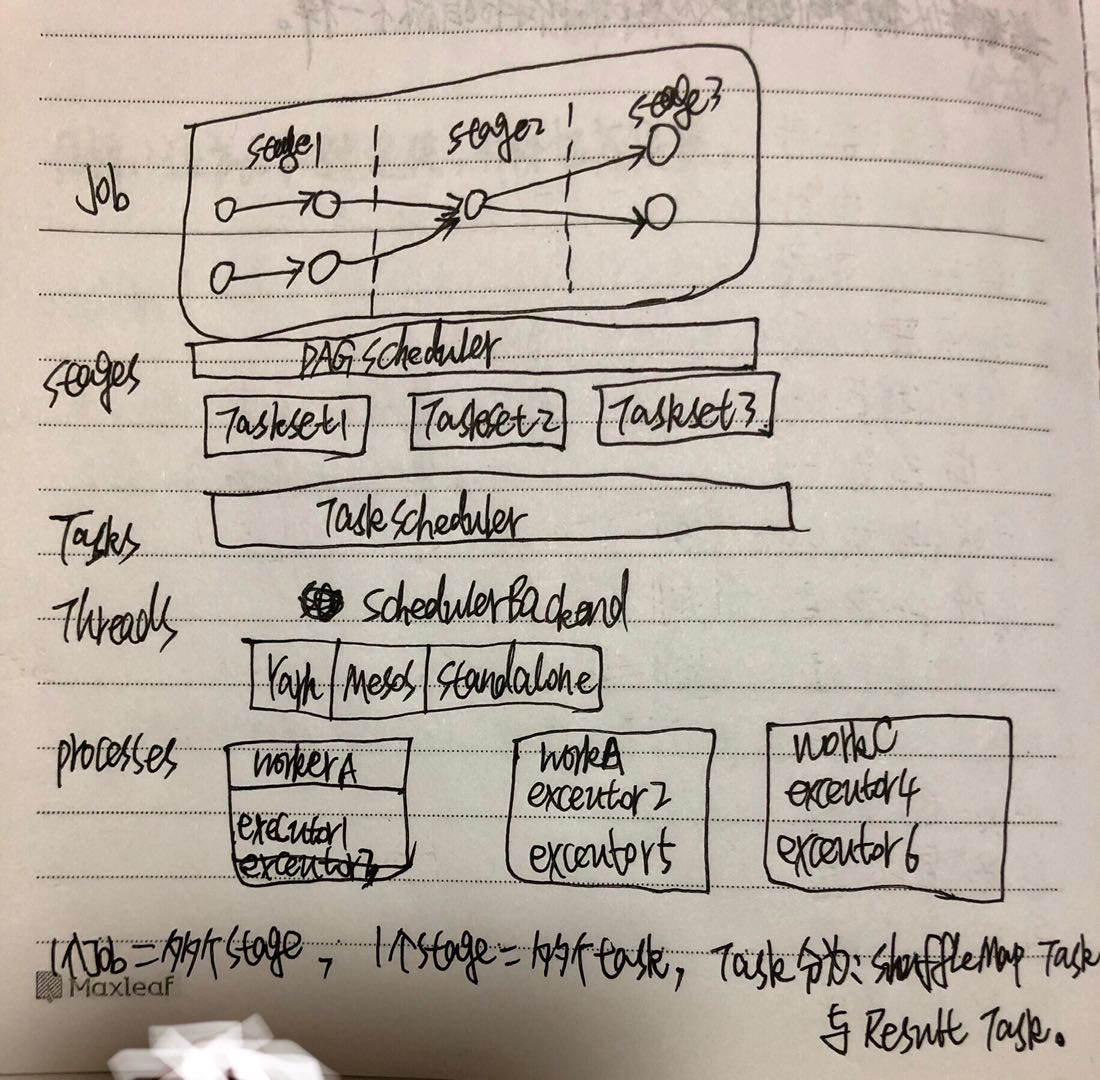 stage1 stage2 stage3
Job
stages
DAGscheduler
Taskset1 Taskset2 Taskset3
Tasks
Taskscheduler
Threads
schedulerBackend
Yarn Mesos standalone
processes
workerA workA workC
executor1 exceutor2 exceutor4
exceutor3 exceutor5 exceutor6
1个Job=多个stage, 1个stage=多个task, Task分为:shuffleMap Task
与Result Task。
Maxleaf